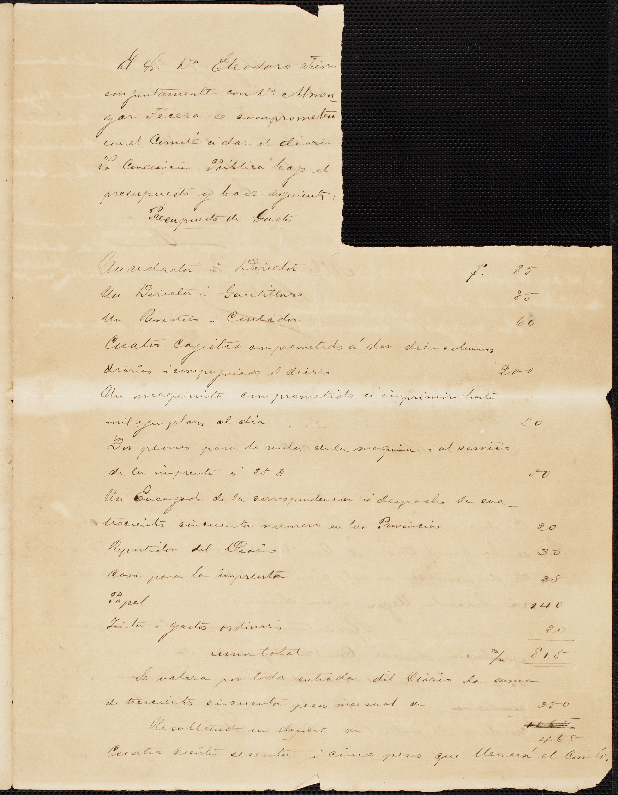 El Sr. Dn Eleodoro
conjuntamente con
se comprometen
con el Comité a dar el diario
La Conciencia Pública bajo el
presupuesto y base siguiente:
Presupuesto de Gasto
Un redactor i Director $. 85
Un Director i Gacetillero 85
Un i Contador 60
Cuatro Cajistas comprometidos á dar diez columnas
diarias i el diario 200
Un maquinista comprometido á imprimir hasta
mil ejemplares al dia 50
Dos peones para la rueda de la maquina i al servicio
de la imprenta á 25 $ 50
Un Encargado de la correspondencia i despacho de cua-
trocientos cincuenta numeros en las Provincias 20
Repartidor del Diario 30
Casa para la imprenta 25
Papel 140
Tinta i gastos ordinarios 20
suma total 815
Se valora por toda entrada del Diario la suma
de trescientos cincuenta pesos mensual 350
Resultando un deficit 465
Cuatrocientos sesenta i cinco pesos que llenará el Comité.